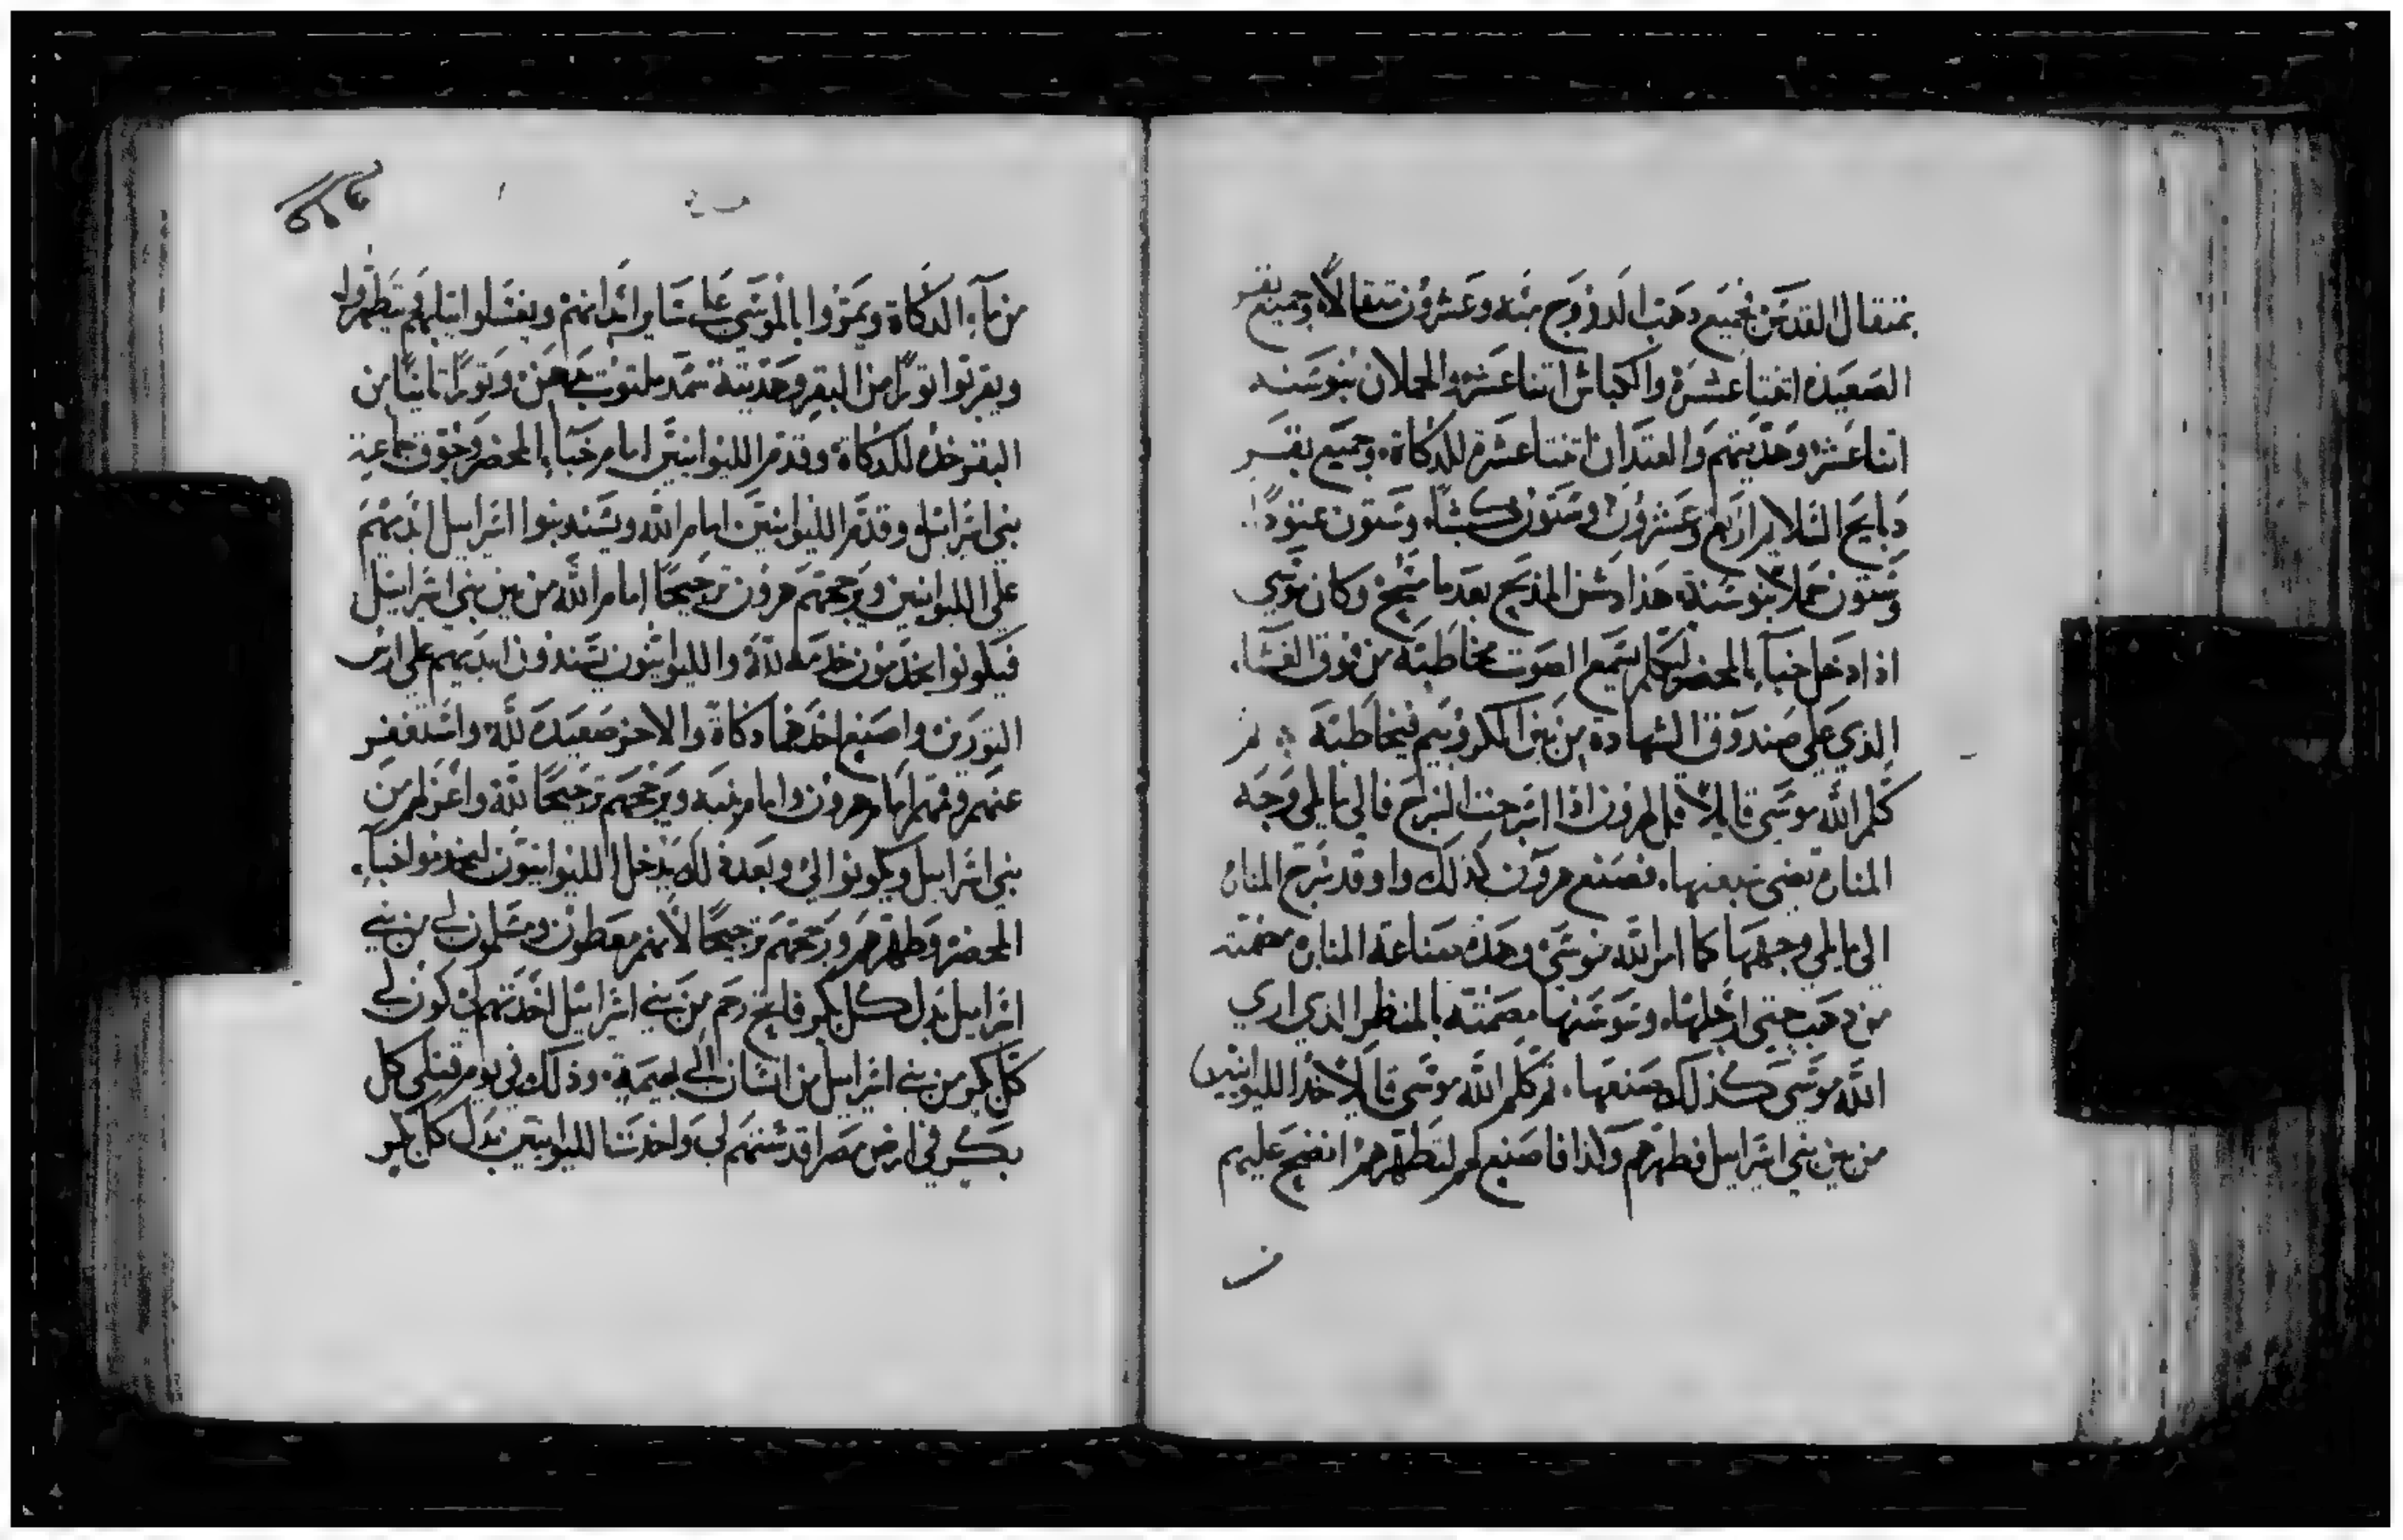 بمتقال القدس فجميع دهب الدروج ميه وعشرون متقالاً وجميع بقر
الصعيده اتنتا عشره والكباش اتنا عشر والحملان بنو سنه
اتنا عشر وهديتهم والعتدان اتنتا عشرة للدكاة وجميع بقر
دبايح السلامه اربع وعشرون وستون كبشًا وستون عتودًا
وستون حملا بنو سنة هذا دشن المذبح بعد ما مسح وكان موسي
اذا دخل خبآء المحضر ليكلم يسمع الصوت مخاطبته من فوق الغشا
الذي علي صندوق الشهادة من بين الكروبيم فيخاطبه ثم
كلم الله موسي قايلاً قل لهرون اذا اسرجت السرج فالي ما يلي وجه
المناره تضي جميعها فصنع هرون كذلك واوقد سرج المناره
الي ما يلي وجهها كما امر الله موسي وهذه صناعة المناره مصمته
من دهب حتي ارجلها وسوسنها مصمته بالمنظر الذي اري
الله موسي كذلك صنعها ثم كلم الله موسي قايلاً خذ الليوانيين
من بين بني اسراييل فطهرهم وكذا فاصنع لهم لتطهرهم انضح عليهم
من مآء الدكاة ويمروا بالموسي علي ساير ابدانهم ويغسلوا تيابهم يتطهروا
ويقربوا تورًا من البقر وهديته سمد ملتوت بدهن وتورًا تانيًا من
البقر خذه للدكاة وقدم الليوانيين امام خبآء المحضر وجوق جماعة
بني اسراييل وقدم الليوانيين امام الله ويسند بنوا اسراييل ايديهم
علي الليوانيين ويرجحهم هرون ترجيحًا امام الله من بين بني اسراييل
فيكونوا يخدمون خدمة لله والليوانيون يسندون ايديهم علي راس
التورين واصنع احدهما دكاة والاخر صعيده لله واستغفر
عنهم وقفهم امام هرون وامام بنيه ويرجحهم ترجيحًا لله واعزلهم من
بني اسراييل ويكونوا لي وبعد ذلك يدخل الليوانيون ليخدموا خبآء
المحضر وطهرهم ورجحهم ترجيحًا لأنهم معطون ومسلمون لي من بني
اسراييل بدل كل بكر فاتح رحم من بني اسراييل اخذتهم ليكون لي
كل بكر من بني اسراييل من انسان الي بهيمة وذلك في يوم قتلي كل
بكر في ارض مصر اقدستهم لي واخذت الليوانيين بدل كل بكر